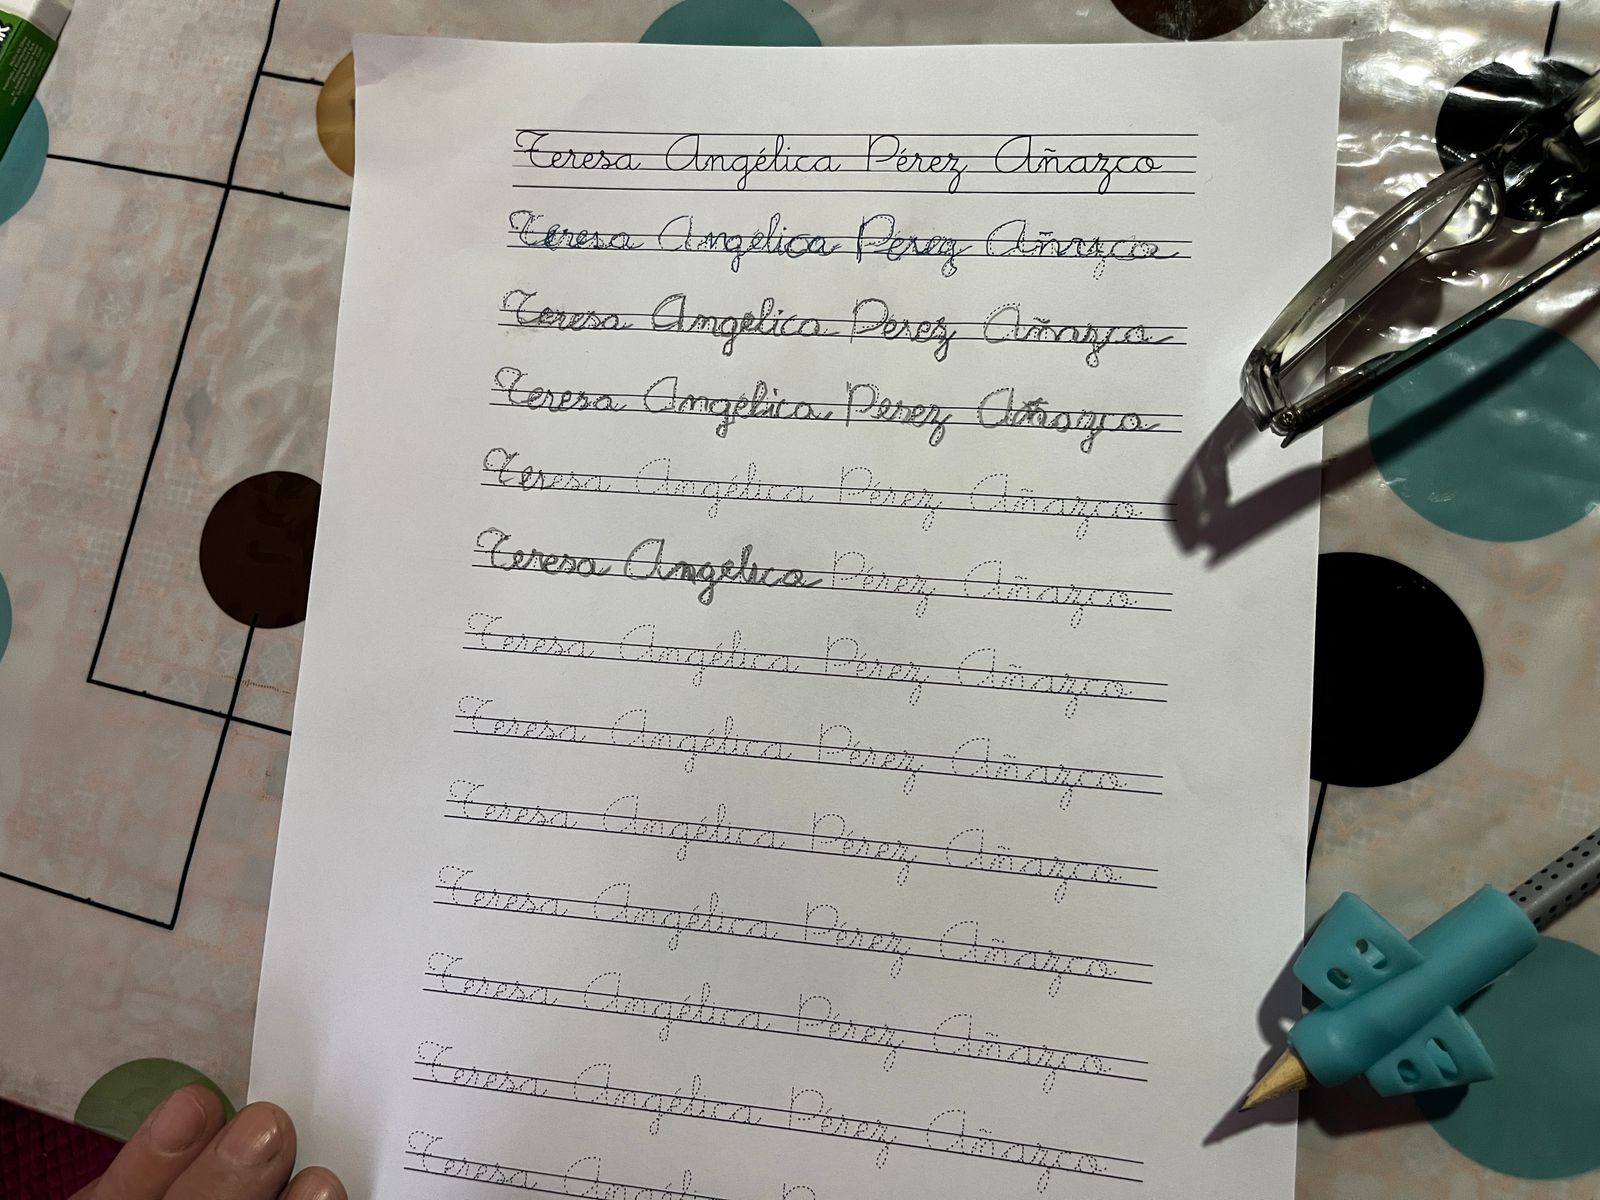 Teresa Angélica Pérez Añazco
Teresa Angélica Pérez Añazco
Teresa Angélica Pérez Añazco
Teresa Angélica Pérez Añazco
Teresa Angélica Pérez Añazco
Teresa Angélica Pérez Añazco
Teresa Angélica Pérez Añazco
Teresa Angélica Pérez Añazco
Teresa Angélica Pérez Añazco
Teresa Angélica Pérez Añazco
Teresa Angélica Pérez Añazco
Teresa Angélica Pérez Añazco
Teresa Angélica